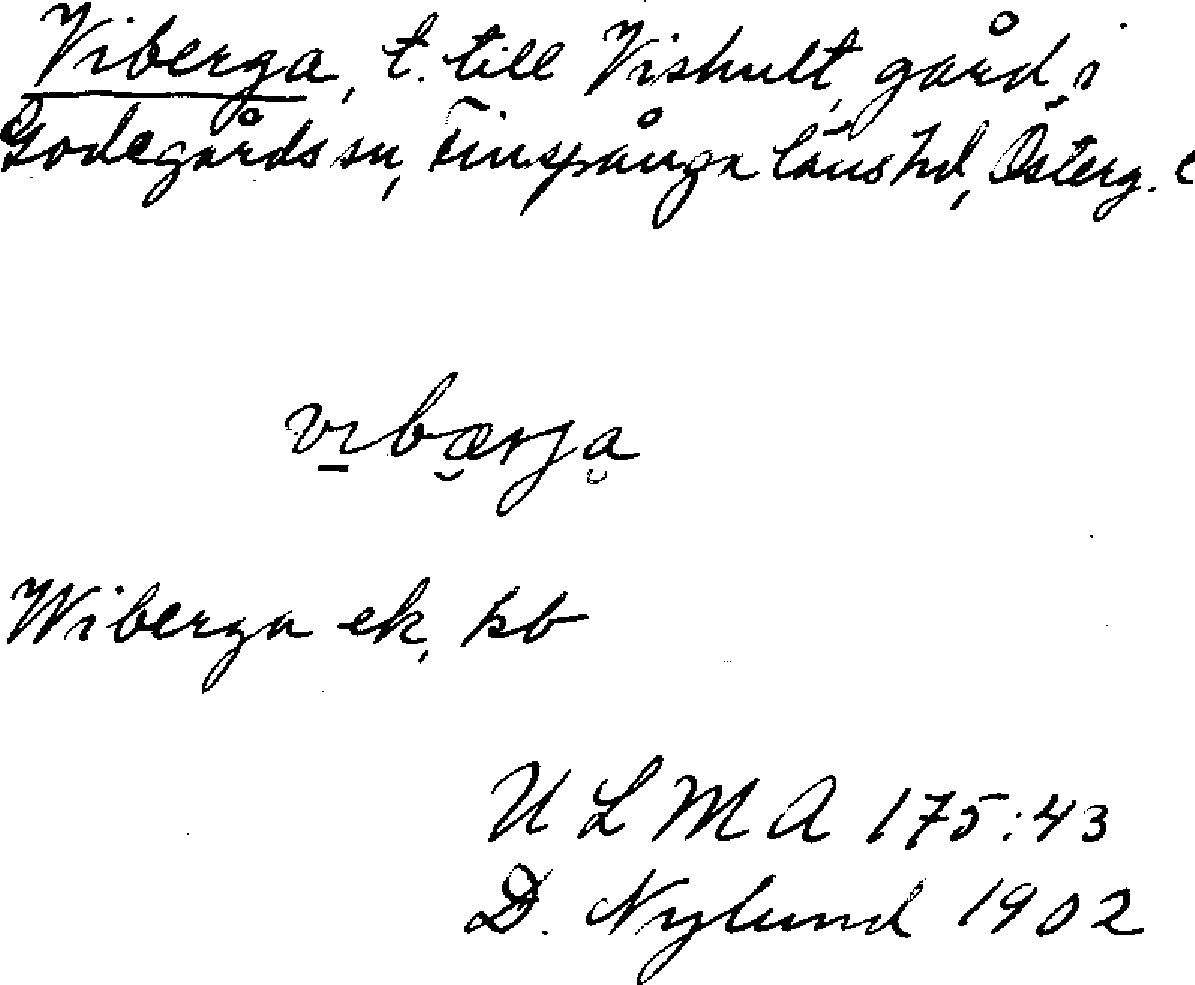 Viberga, t. till Vishult, gård i
Godegårds sn, Finspånga läns hd, Österg.
vi̱bærja
Wiberga ek, kb
ULMA 175:43
D. Nylund 1902